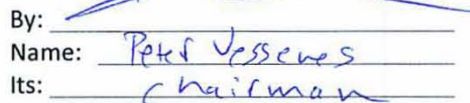 By:
Name: Peter Vessenes
Its: Chairman